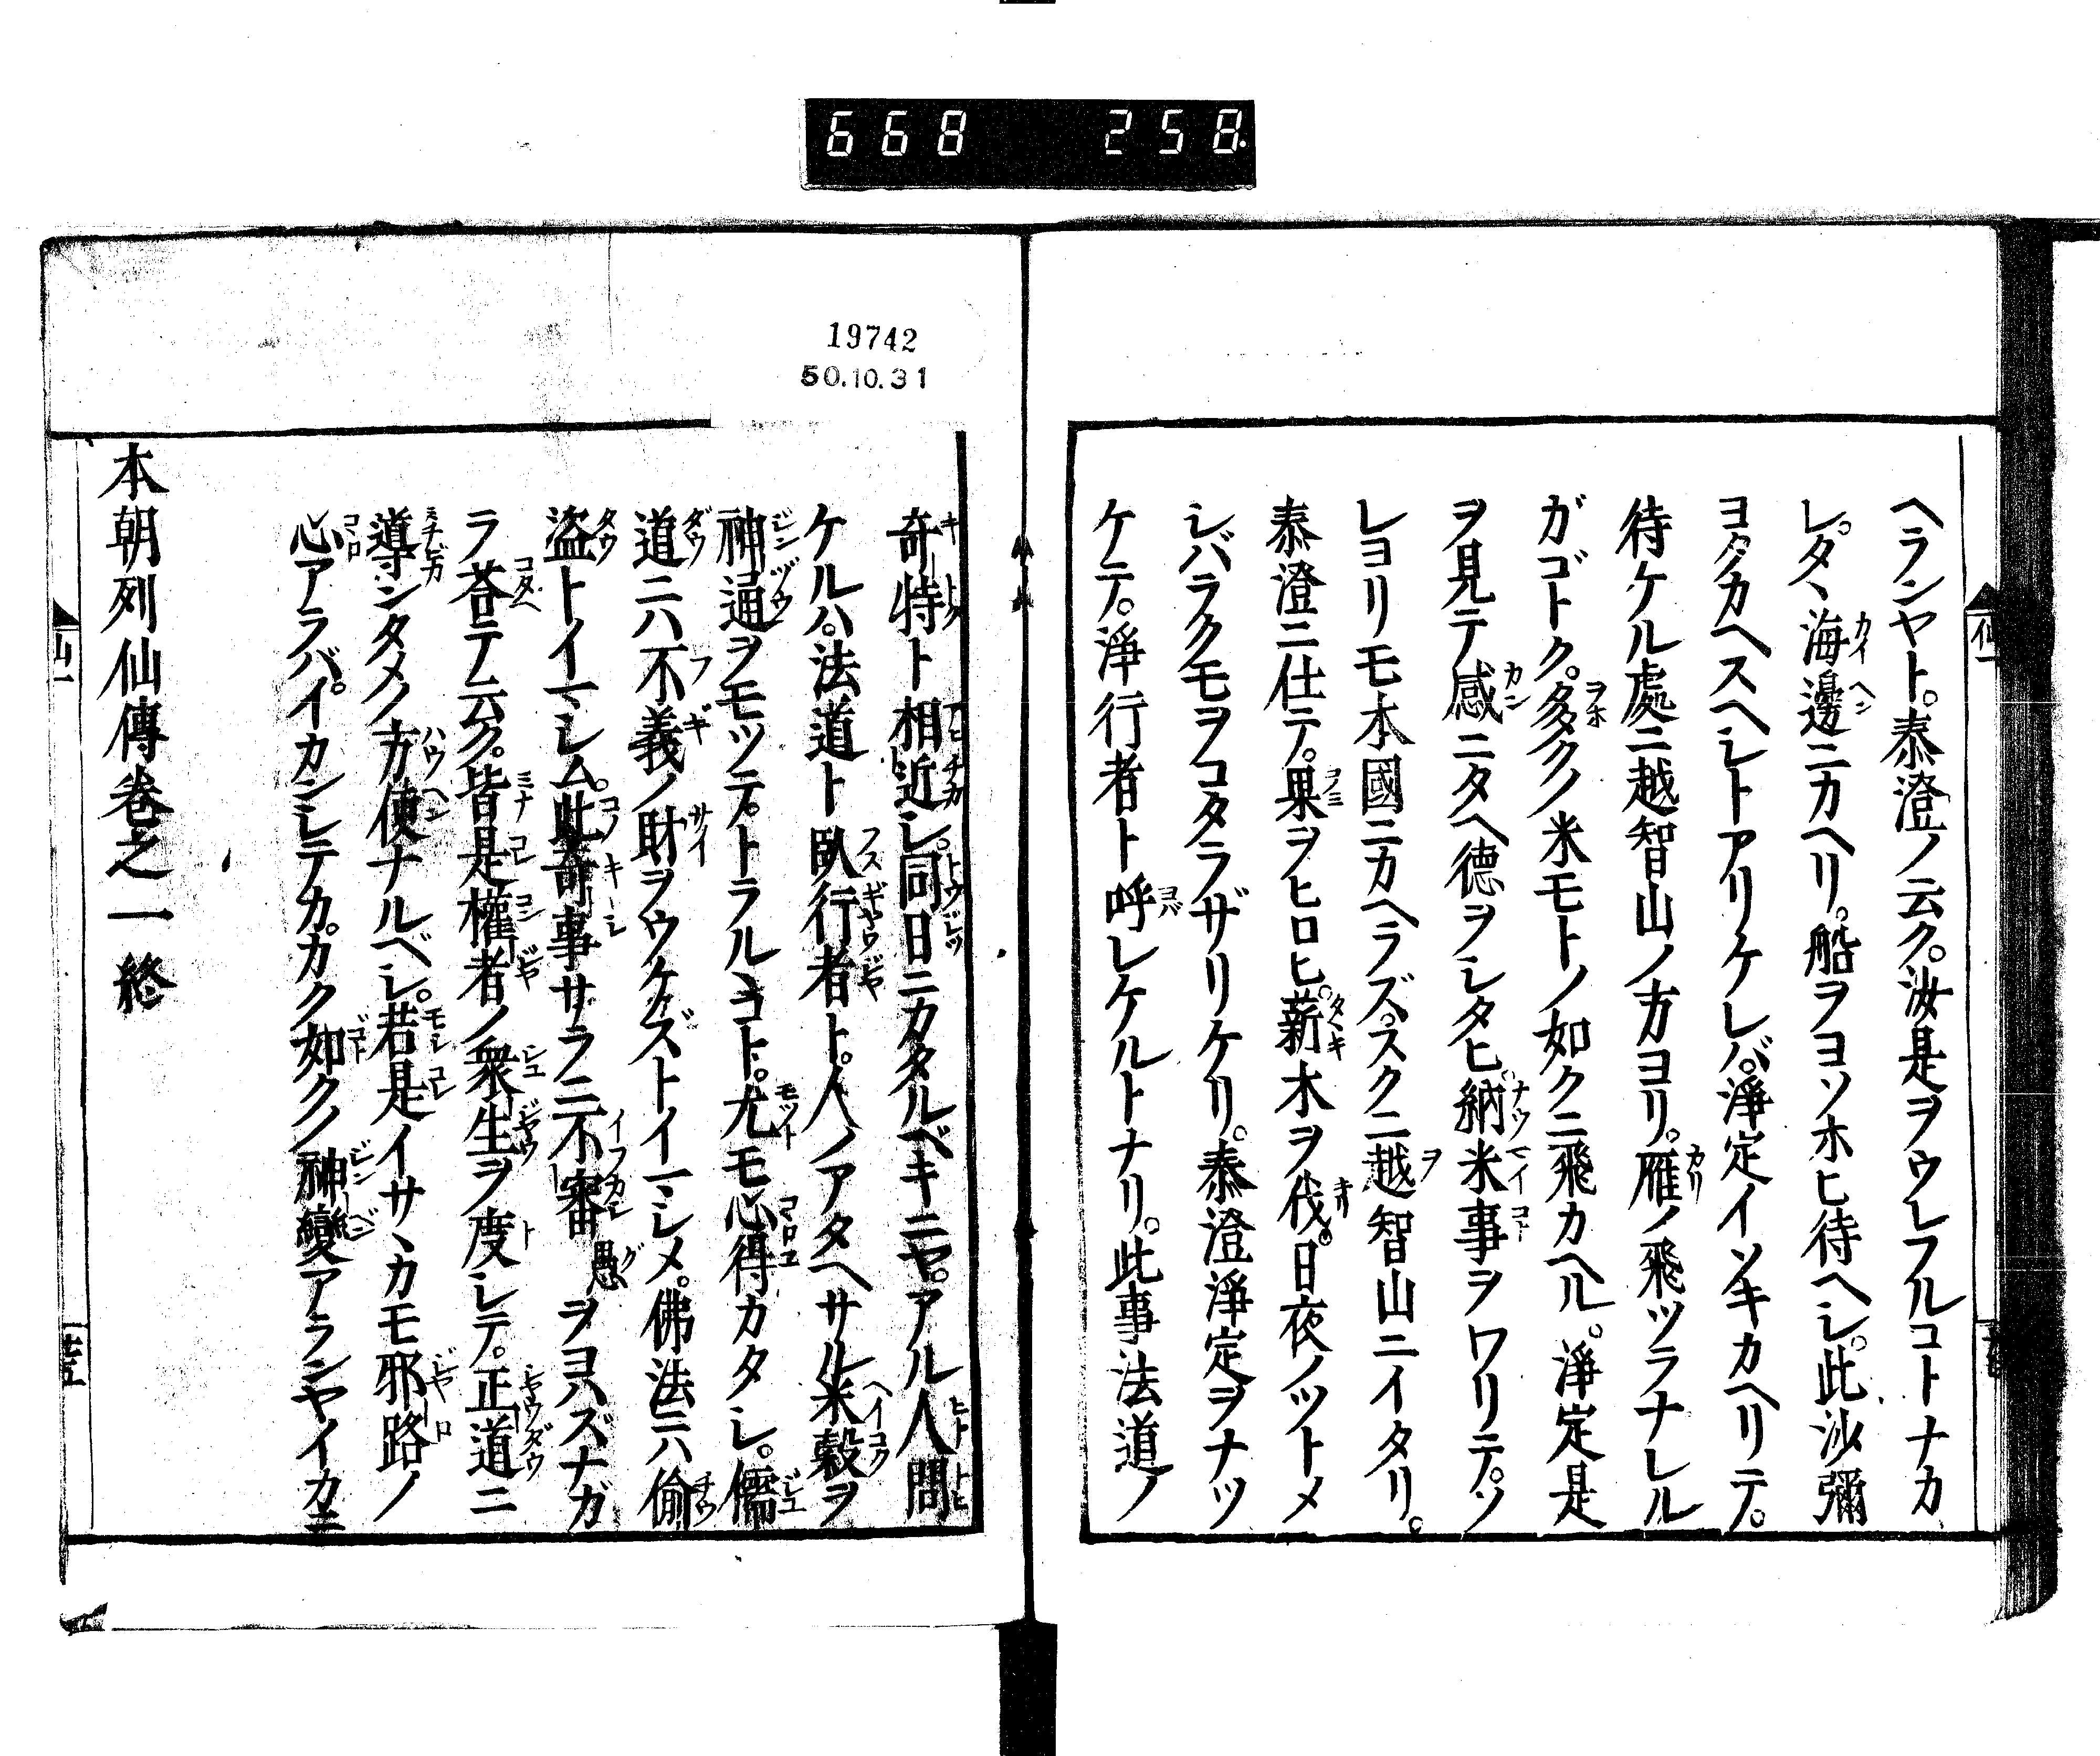 668 258.
ヘランヤト。泰澄ノ云ク。汝是ヲウレフルコトナカ
レ。タヽ海邊ニカヘリ。船ヲヨソホヒ待ヘシ。此沙彌
ヨク〱カヘスヘシトアリケレバ。淨定イソキカヘリテ。
待ケル處ニ越智山ノ方ヨリ。雁ノ飛ツラナレル
ガゴトク。多クノ米モトノ如クニ飛カヘル。淨定是
ヲ見テ感ニタヘ德ヲシタヒ。納米事ヲワリテ。ソ
レヨリモ本國ニカヘラズ。スクニ越智山ニイタリ。
泰澄ニ仕テ。果ヲヒロヒ。薪木ヲ伐。日夜ノツトメ
シバラクモヲコタラザリケリ。泰澄淨定ヲナツ
ケテ。淨行者ト呼レケルトナリ。此事法道ノ
19742
50.10.31
奇特ト相近シ。同日ニカタルベキニヤ。アル人問
ケルハ。法道ト臥行者ト。人ノアタヘサル米穀ヲ
神通ヲモツテトラルヽコト。尤モ心得カタシ。儒
道ニハ不義ノ財ヲウケズトイマシメ。佛法ニハ偷
盜トイマシム。此奇事サラニ不審 愚ヲヨハズナガ
ラ荅テ云ク。皆是權者ノ衆生ヲ度シテ。正道ニ
導ンタメノ方便ナルベシ。若是イサヽカモ邪路ノ
心アラバ。イカンシテカ。カク如クノ神變アランヤイカニ
本朝列仙傳卷之一終